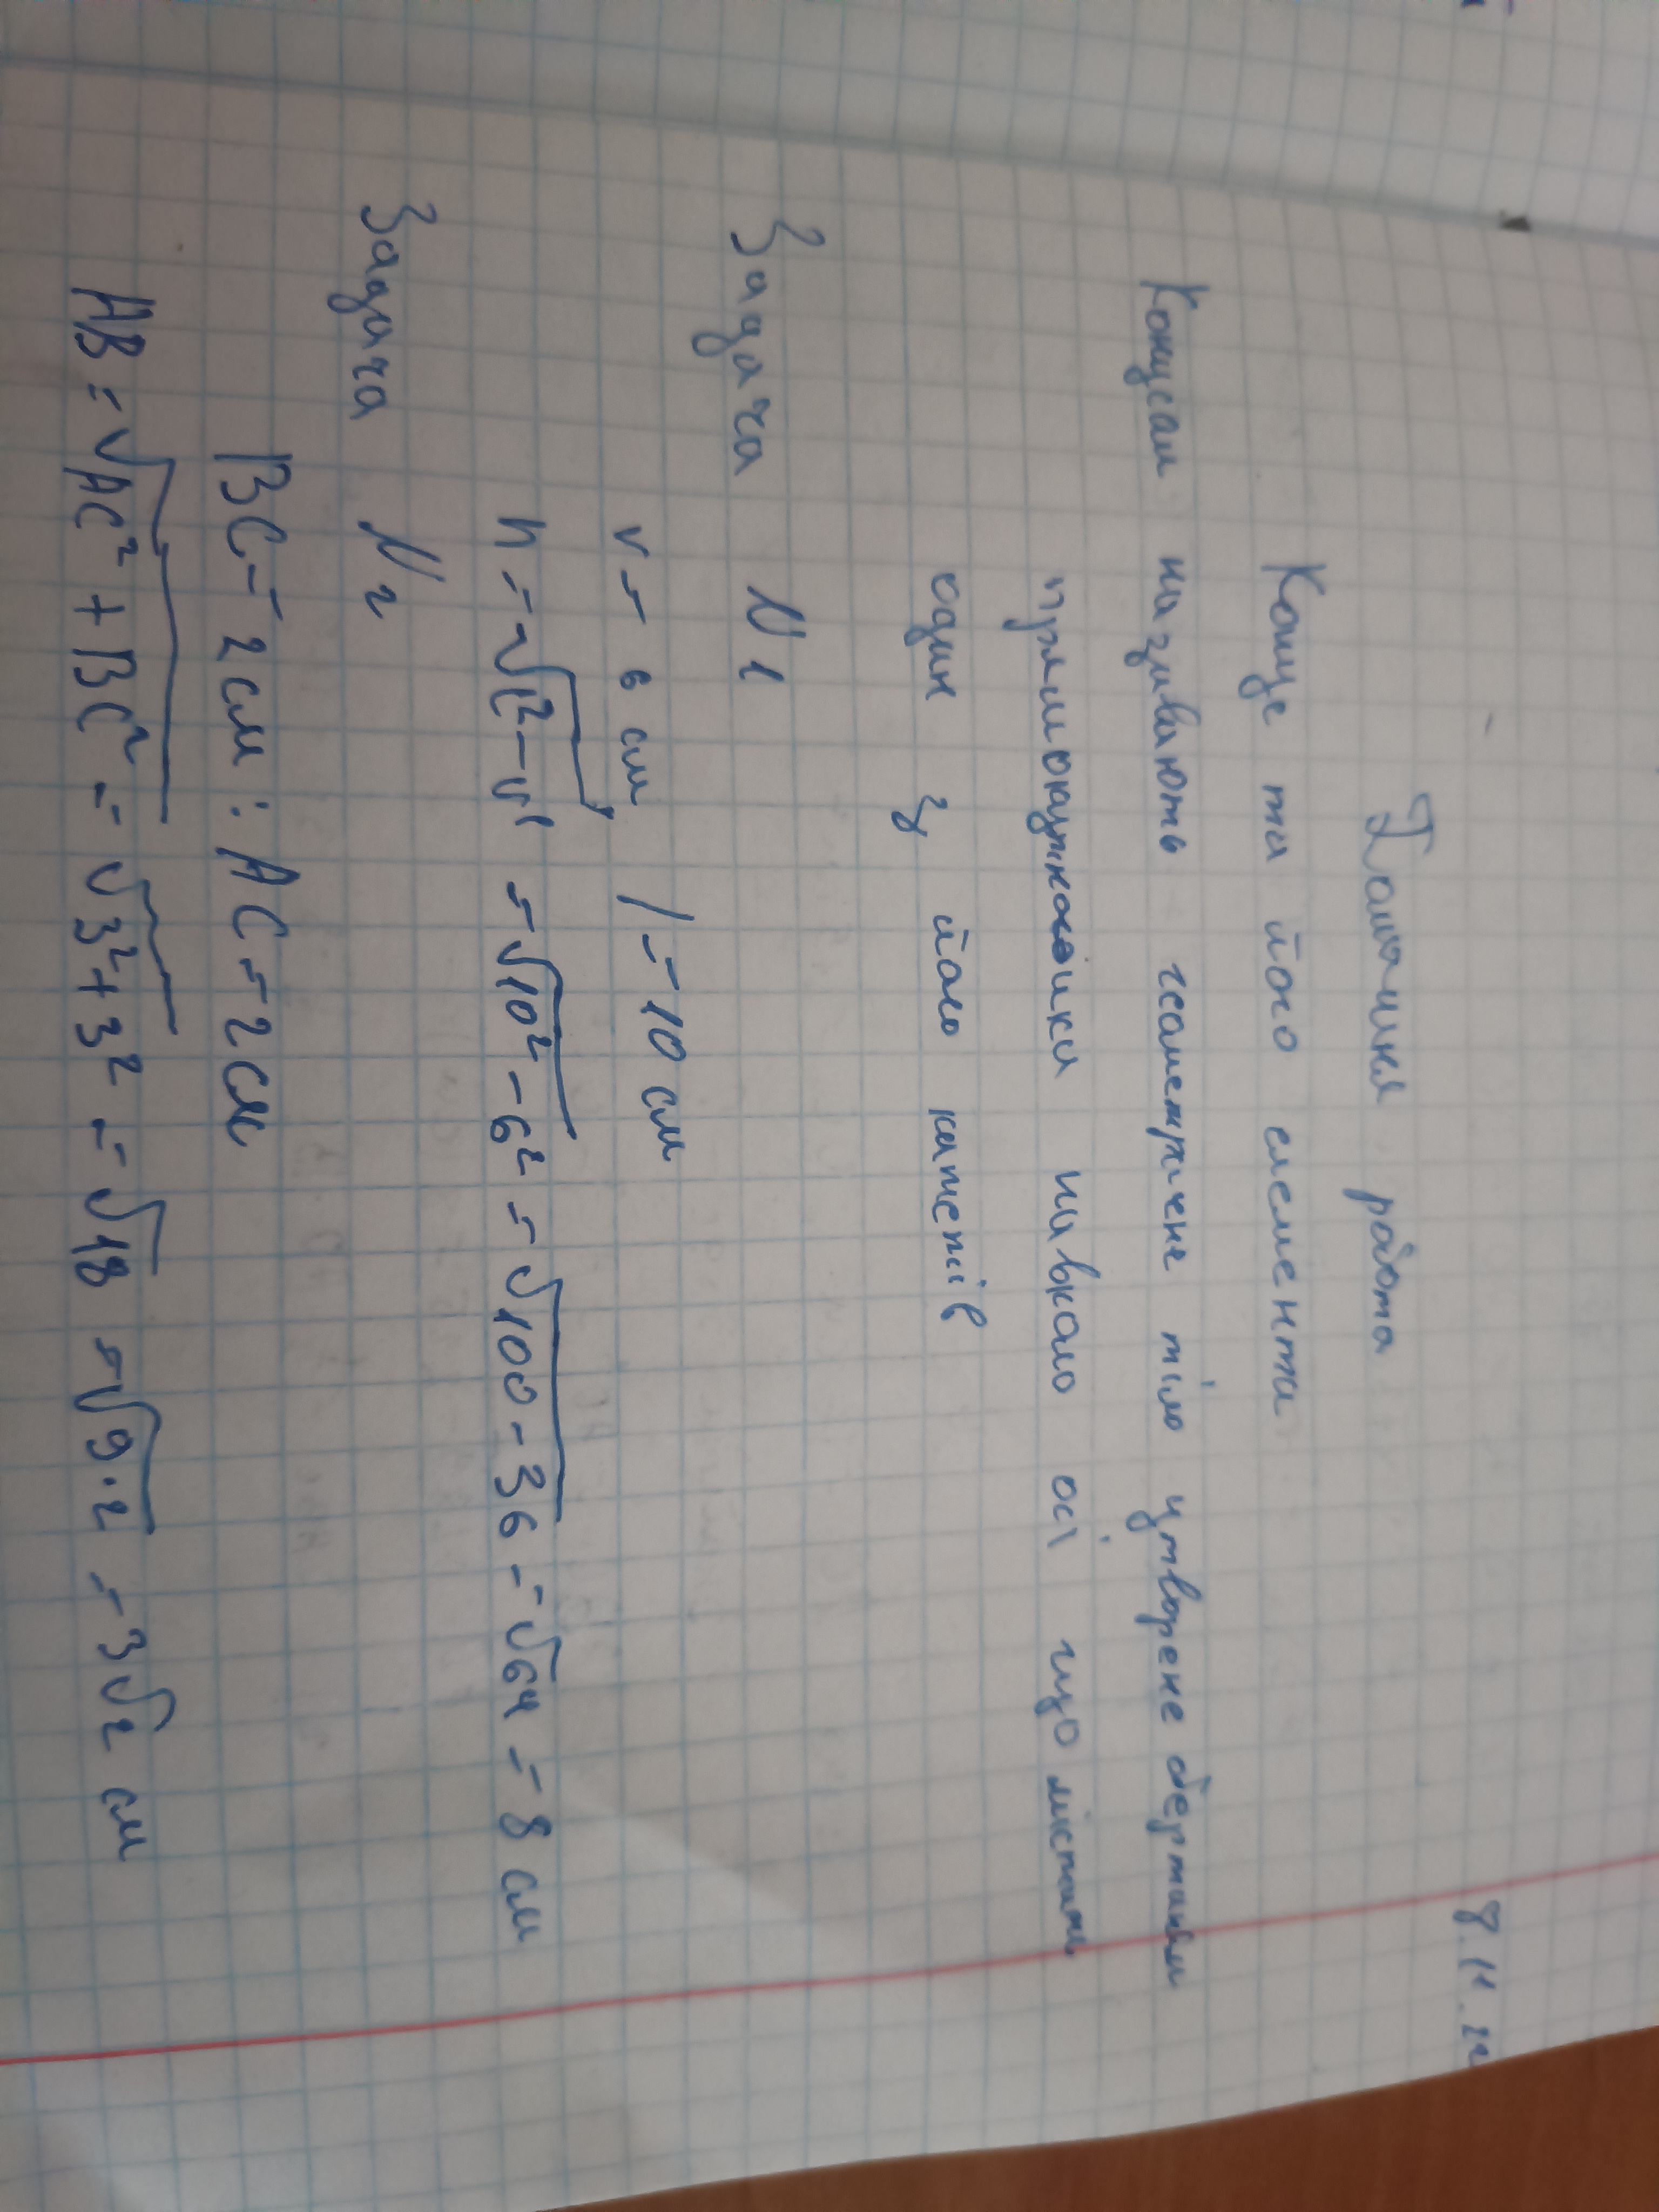 8.11.22
Домашня робота
Конус та його елементи
Конусом називають геометричне тіло утворене обертанням
прямокутника навколо осі що містить
один з його катетів
Задача N 1
r = 6 см l = 10 см
h = √l² - r² = √10² - 6² = √100 - 36 = √64 = 8 см
Задача N 2
BC = 2 см : AC = 2 см
AB = √AC² + BC² = √3² + 3² = √18 = √9 · 2 = 3√2 см